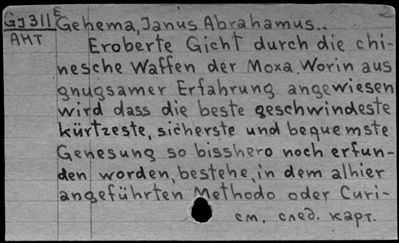 GJ311E Gehema, Janus Abrahamus..
AHT Eroberte Gicht durch die chi-
nesche Waffen der Moxa. Worin aus
gnugsamer Erfahrung angewiesen
wird dass die beste geschwindeste
kürtzeste, sicherste und bequemste
Genesung so bisshero noch erfun-
den worden, bestehe, in dem alhier
angeführten Methodo oder Curi-
см. след. карт.